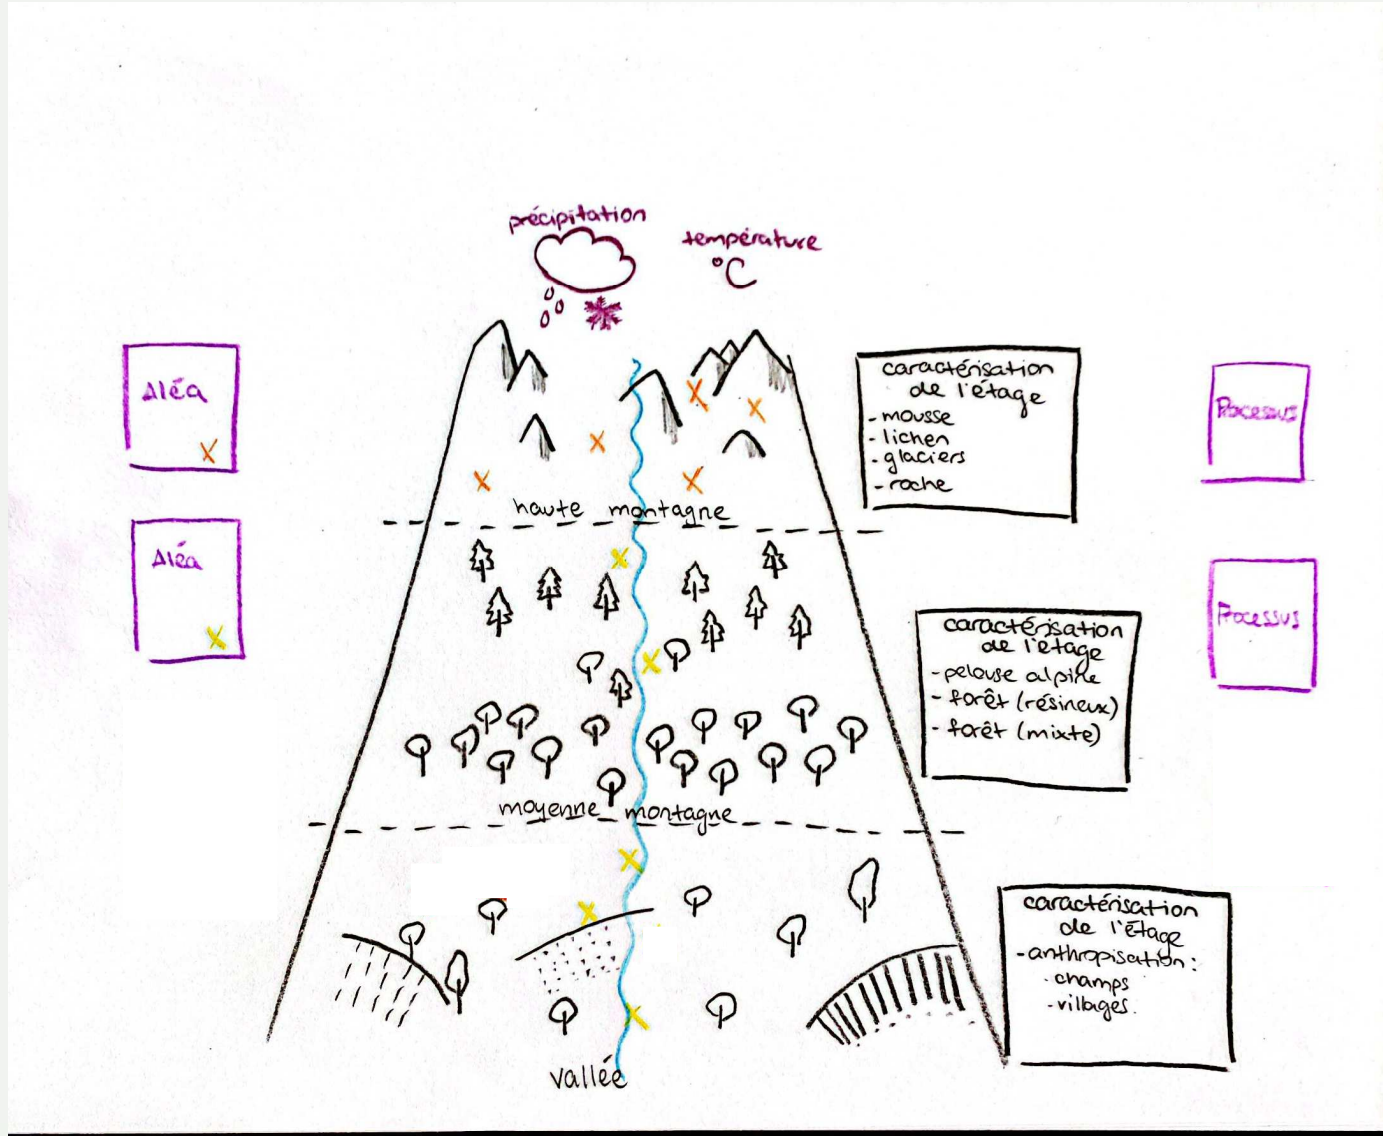 précipitation
température
°C
Aléa
caractérisation
de l'étage
- mousse
- lichen
- glaciers
- roche
Processus
haute montagne
Aléa
caractérisation
de l'étage
- pelouse alpine
- forêt (résineux)
- forêt (mixte)
Processus
moyenne montagne
caractérisation
de l'étage
- anthropisation :
· champs
- villages.
vallée